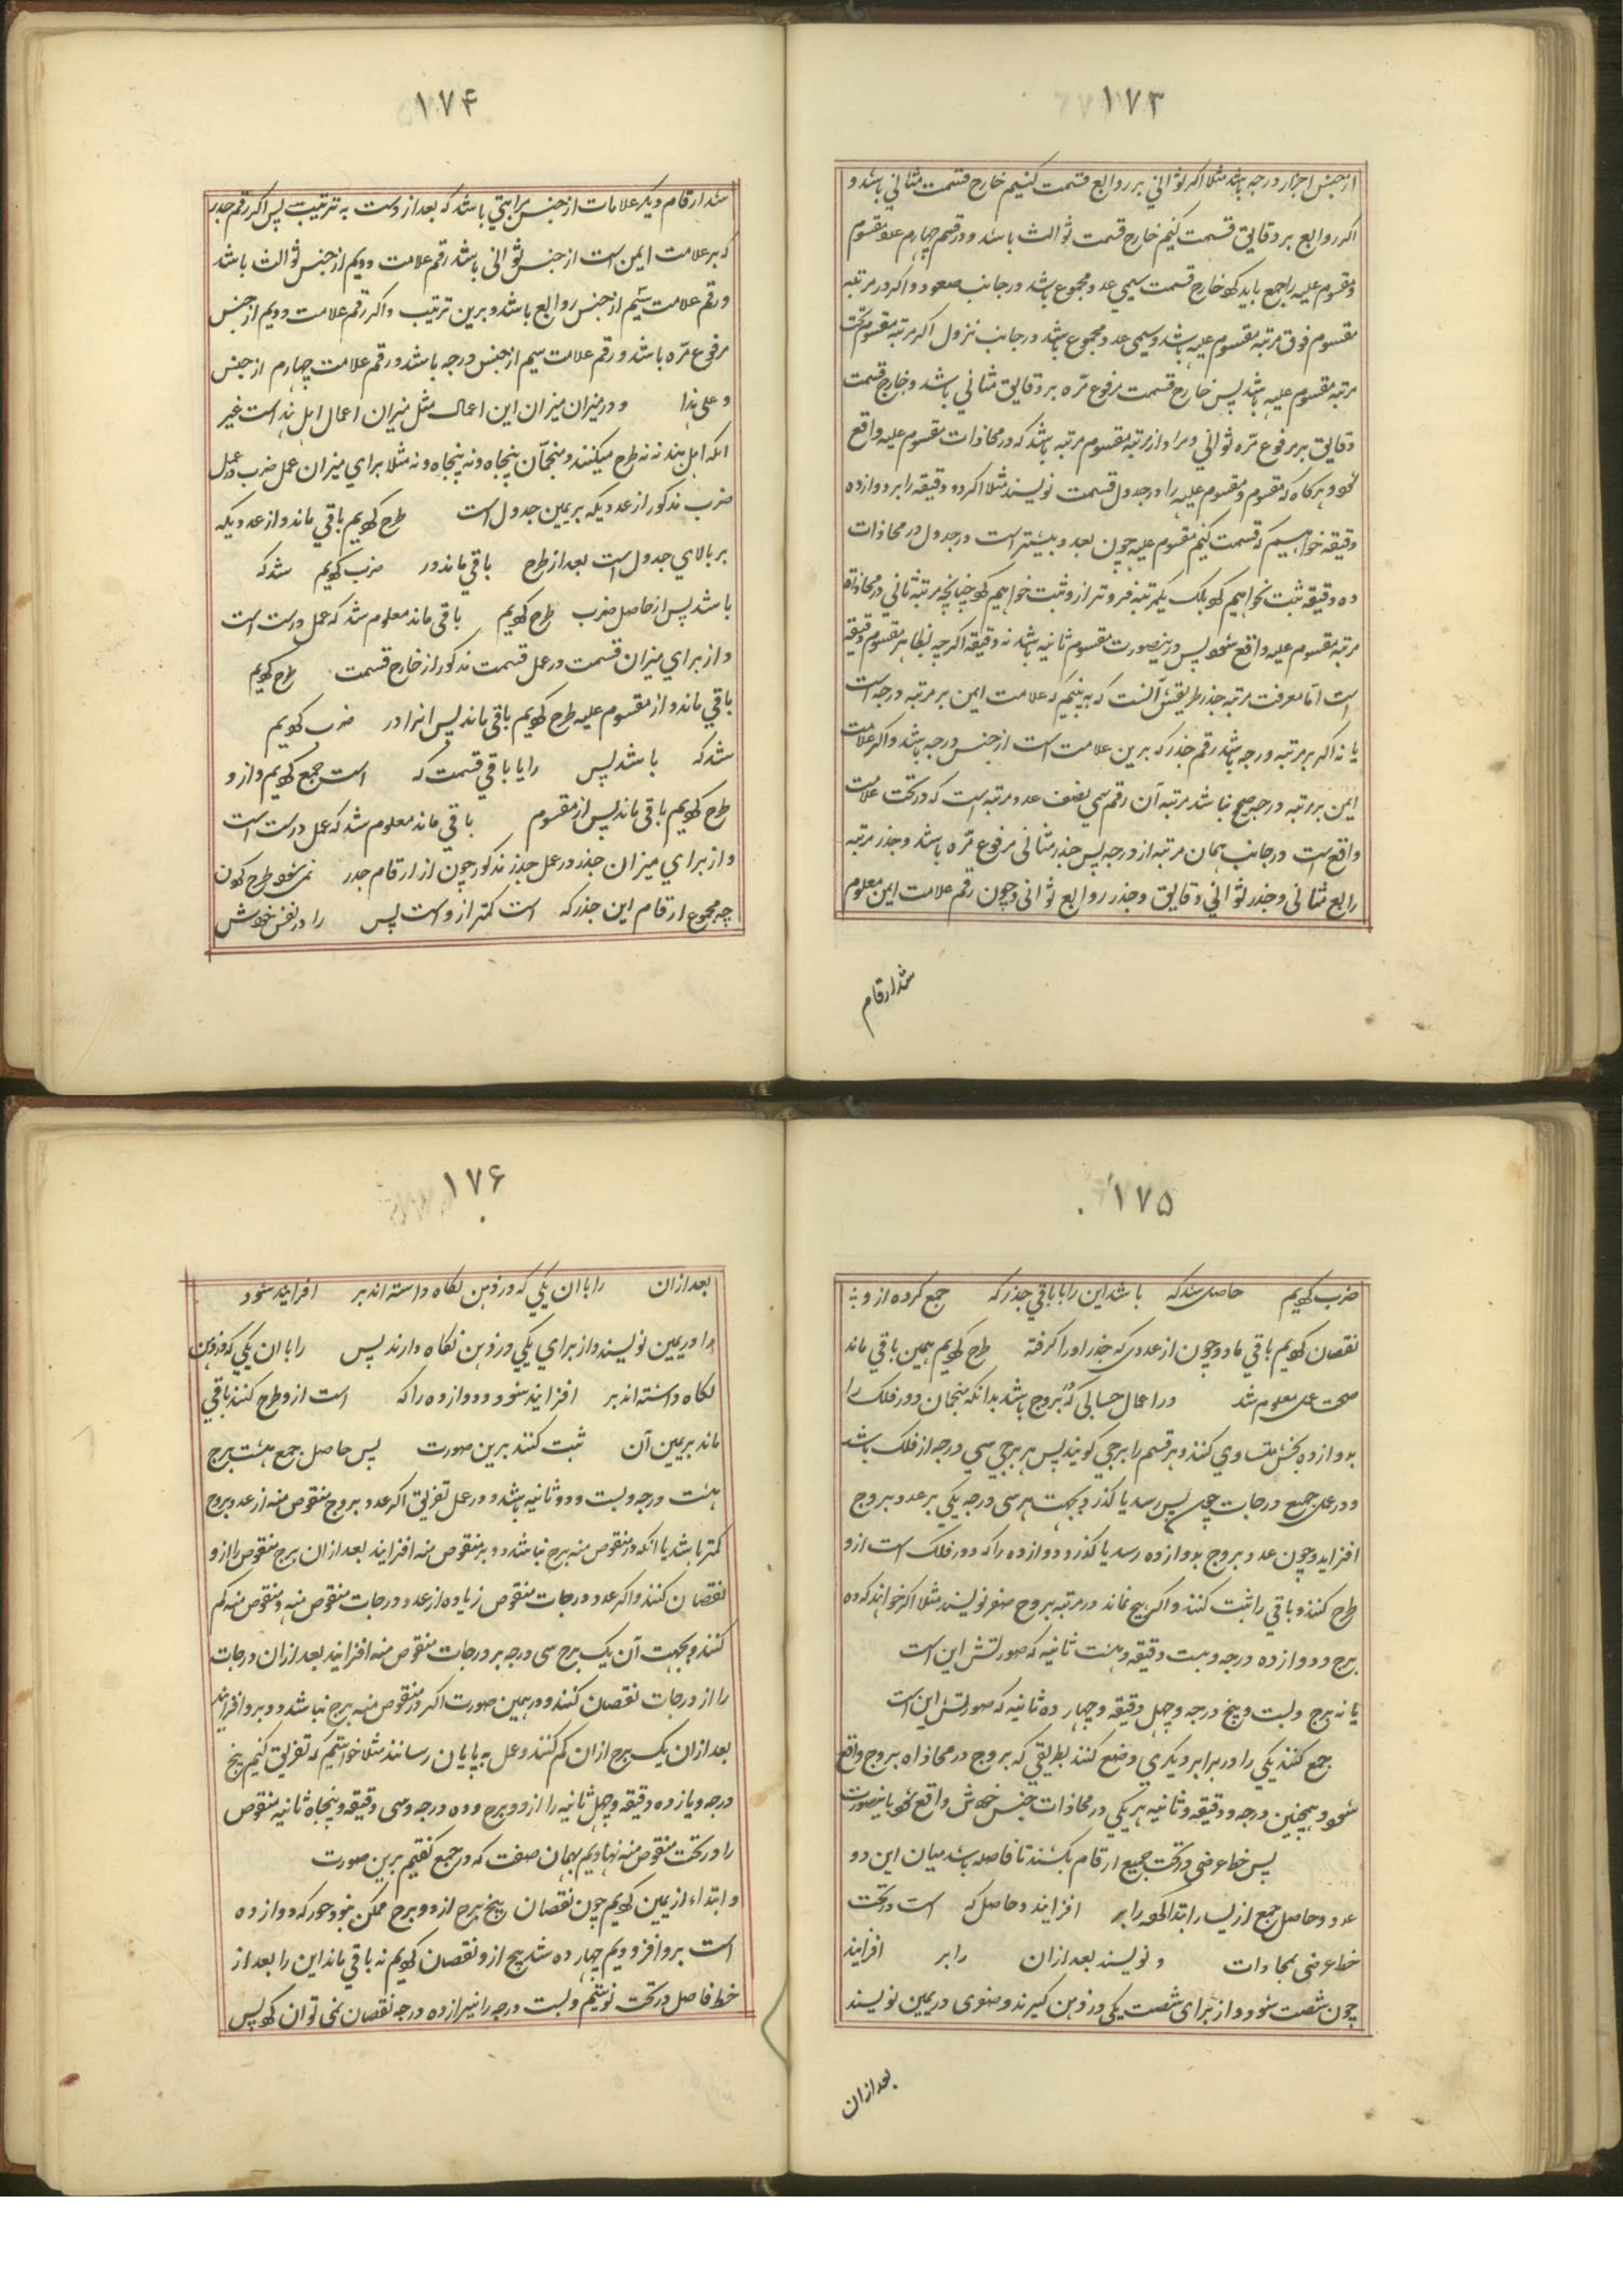 ۱۷۳
از جنس اجزار درجه باشد مثلا اکر ثوانی بر روابع قسمت کنیم خارج قسمت مثانی باشد و
اکر روابع بر دقایق قسمت کنیم خارج قسمت ثوالث باشد و در قسم چهارم عدد مقسوم
و مقسوم علیه را جمع باید کرد خارج قسمت سمی عدد مجموع باشد در جانب صعود و اکر در مرتبه
مقسوم فوق مرتبه مقسوم علیه باشد و سمی عدد مجموع باشد در جانب نزول اکر مرتبه مقسوم تحت
مرتبه مقسوم علیه باشد پس خارج قسمت مرفوع مره بر دقایق مثانی باشد و خارج قسمت
دقایق بر مرفوع مره ثوانی و مراد از مرتبه مقسوم مرتبه باشد که در محاذات مقسوم علیه واقع
شود و هرکاه که مقسوم و مقسوم علیه را در جدول قسمت نویسند مثلا اکر ده دقیقه را بر دوازده
دقیقه خواهیم که قسمت کنیم مقسوم علیه چون بعدد بیشتر است در جدول در محاذات
ده دقیقه ثبت نخواهیم کرد بلک یکمرتبه فروتر ازو ثبت خواهیم کرد چنانچه مرتبه ثانی در محاذاة
مرتبه مقسوم علیه واقع شود پس درینصورت مقسوم ثانیه باشد نه دقیقه اکرچه بظاهر مقسوم دقیقه
است اما معرفت مرتبه جذر طریقش آنست که به بینیم که علامت ایمن بر مرتبه درجه است
یا نه اکر بر مرتبه درجه باشد رقم جذر که برین علامت است از جنس درجه باشد و اکر علامت
ایمن بر مرتبه درجه صحیح نباشد مرتبه آن رقم سمی نصف عدد مرتبه است که در تحت علامت
واقع است در جانب همان مرتبه از درجه پس جذر مثانی مرفوع مره باشد و جذر مرتبه
رابع مثانی و جذر ثوانی دقایق و جذر روابع ثوانی و چون رقم علامت ایمن معلوم
شد ارقام
۱۷۴
شد ارقام دیکر علامات از جنس مراتبی باشد که بعد ازوست به ترتیب پس اکر رقم جذر
که بر علامت ایمن است از جنس ثوانی باشد رقم علامت دویم از جنس ثوالث باشد
و رقم علامت سیم از جنس روابع باشد و برین ترتیب و اکر رقم علامت دویم از جنس
مرفوع مره باشد و رقم علامت سیم از جنس درجه باشد و رقم علامت چهارم از جنس
و علی هذا و در میزان میزان این اعمال مثل میزان اعمال اهل هند است غیر
انکه اهل هند نه نه طرح میکنند و منجمان پنجاه و نه پنجاه و نه مثلا برای میزان عمل ضرب در عمل
ضرب مذکور از عدد یکه بر یمین جدول است طرح کردیم باقی ماند و از عدد یکه
بر بالای جدول است بعد از طرح باقی ماند در ضرب کردیم شد که
باشد پس از حاصل ضرب طرح کردیم باقی ماند معلوم شد که عمل درست است
و از برای میزان قسمت در عمل قسمت مذکور از خارج قسمت طرح کردیم
باقی ماند و از مقسوم علیه طرح کردیم باقی ماند پس انرا در ضرب کردیم
شد که باشد پس را با باقی قسمت که است جمع کردیم و از و
طرح کردیم باقی ماند پس از مقسوم باقی ماند معلوم شد که عمل درست است
و از برای میزان جذر در عمل جذر مذکور چون از ارقام جدر نمی شود طرح کردن
چه مجموع ارقام این جذر که است کمتر ازوست پس را در نفس خودش
۱۷۵
ضرب کردیم حاصل شد که باشد این را با باقی جذر که جمع کرده از و
نقصان کردیم باقی ماند و چون از عددی که جذر او را کرفته طرح کردیم همین باقی ماند
صحت عمل معلوم شد در اعمال حسابی که در بروج باشد بدانکه منجمان دور فلک را
بدوازده بخش متساوی کنند و هر قسم را برجی کویند پس هر برجی سی درجه از فلک باشد
و در عمل جمیع درجات چون بسی رسد یا کذرد بجهت هر سی درجه یکی بر عدد بروج
افزاید و چون عدد بروج بدوازده رسد یا کذرد دوازده را که دور فلک است ازو
طرح کنند و باقی را ثبت کنند و اکر هیچ نماند در مرتبه بروج صفر نویسند مثلا اکر خواهند که ده
برج و دوازده درجه و بیست دقیقه و هشت ثانیه که صورتش این است
با نه برج و بیست و پنج درجه و چهل دقیقه و چهارده ثانیه که صورتش این است
جمع کنند یکی را در برابر دیکری وضع کنند بطریقی که بروج در محاذاه بروج واقع
شود و همچنین درجه و دقیقه و ثانیه هر یکی در محاذات جنس خودش واقع شود باینصورت
پس خط عرضی در تحت جمیع ارقام بکشند تا فاصله باشد میان این دو
عدد و حاصل جمع از یسار ابتدا کرده را بر افزایند و حاصل که است در تحت
خط عرضی بمحاذات و نویسند بعد ازان را بر افزایند
چون شصت شود و از برای شصت یکی در ذهن کیرند و صفری در یمین نویسند
بعد ازان
۱۷۶
بعد ازان را با ان یکی که در ذهن نکاه داشته اند بر افزایند شود
را در یمین نویسند و از برای یکی در ذهن نکاه دارند پس را با ان یکی که در ذهن
نکاه داشته اند بر افزایند شود و دوازده را که است ازو طرح کنند باقی
ماند بر یمین آن ثبت کنند برین صورت پس حاصل جمع هشت برج
هشت درجه و بیست و دو ثانیه باشد و در عمل تفریق اکر عدد بروج منقوص منه از عدد بروج
کمتر باشد یا انکه در منقوص منه برج نباشد دور بر منقوص منه افزایند بعد ازان برج منقوص را از و
نقصان کنند و اکر عدد درجات منقوص زیاده از عدد درجات منقوص منه و منقوص منه کم
کنند و بجهت آن یک برج سی درجه بر درجات منقوص منه افزایند بعد ازان درجات
را از درجات نقصان کنند و در همین صورت اکر در منقوص منه برج نباشد دور برو افزایند
بعد ازان یک برج ازان کم کنند و عمل به پایان رسانند مثلا خواستیم که تفریق کنیم پنج
درجه و یازده دقیقه و چهل ثانیه را از دو برج و ده درجه و سی دقیقه و پنجاه ثانیه منقوص
را در تحت منقوص منه نهادیم بهمان صفت که در جمع کفتیم برین صورت
و ابتداء از یمین کردیم چون نقصان پنج برج از دو برج ممکن نبود دور که دوازده
است برو افزودیم چهارده شد پنج ازو نقصان کردیم نه باقی ماند این را بعد از
خط فاصل در تحت نوشتیم و بیست درجه را نیز از ده درجه نقصان نمی توان کرد پس